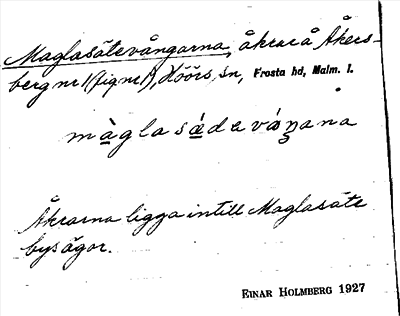 Maglasätevångarna, åkrar å Åkers-
berg nr 1 (fig nr 1), Höörs sn, Frosta hd, Malm. l.
màglasǽdavåŋana
Åkrarna ligga intill Maglasäte
bys ägor.
EINAR HOLMBERG 1927